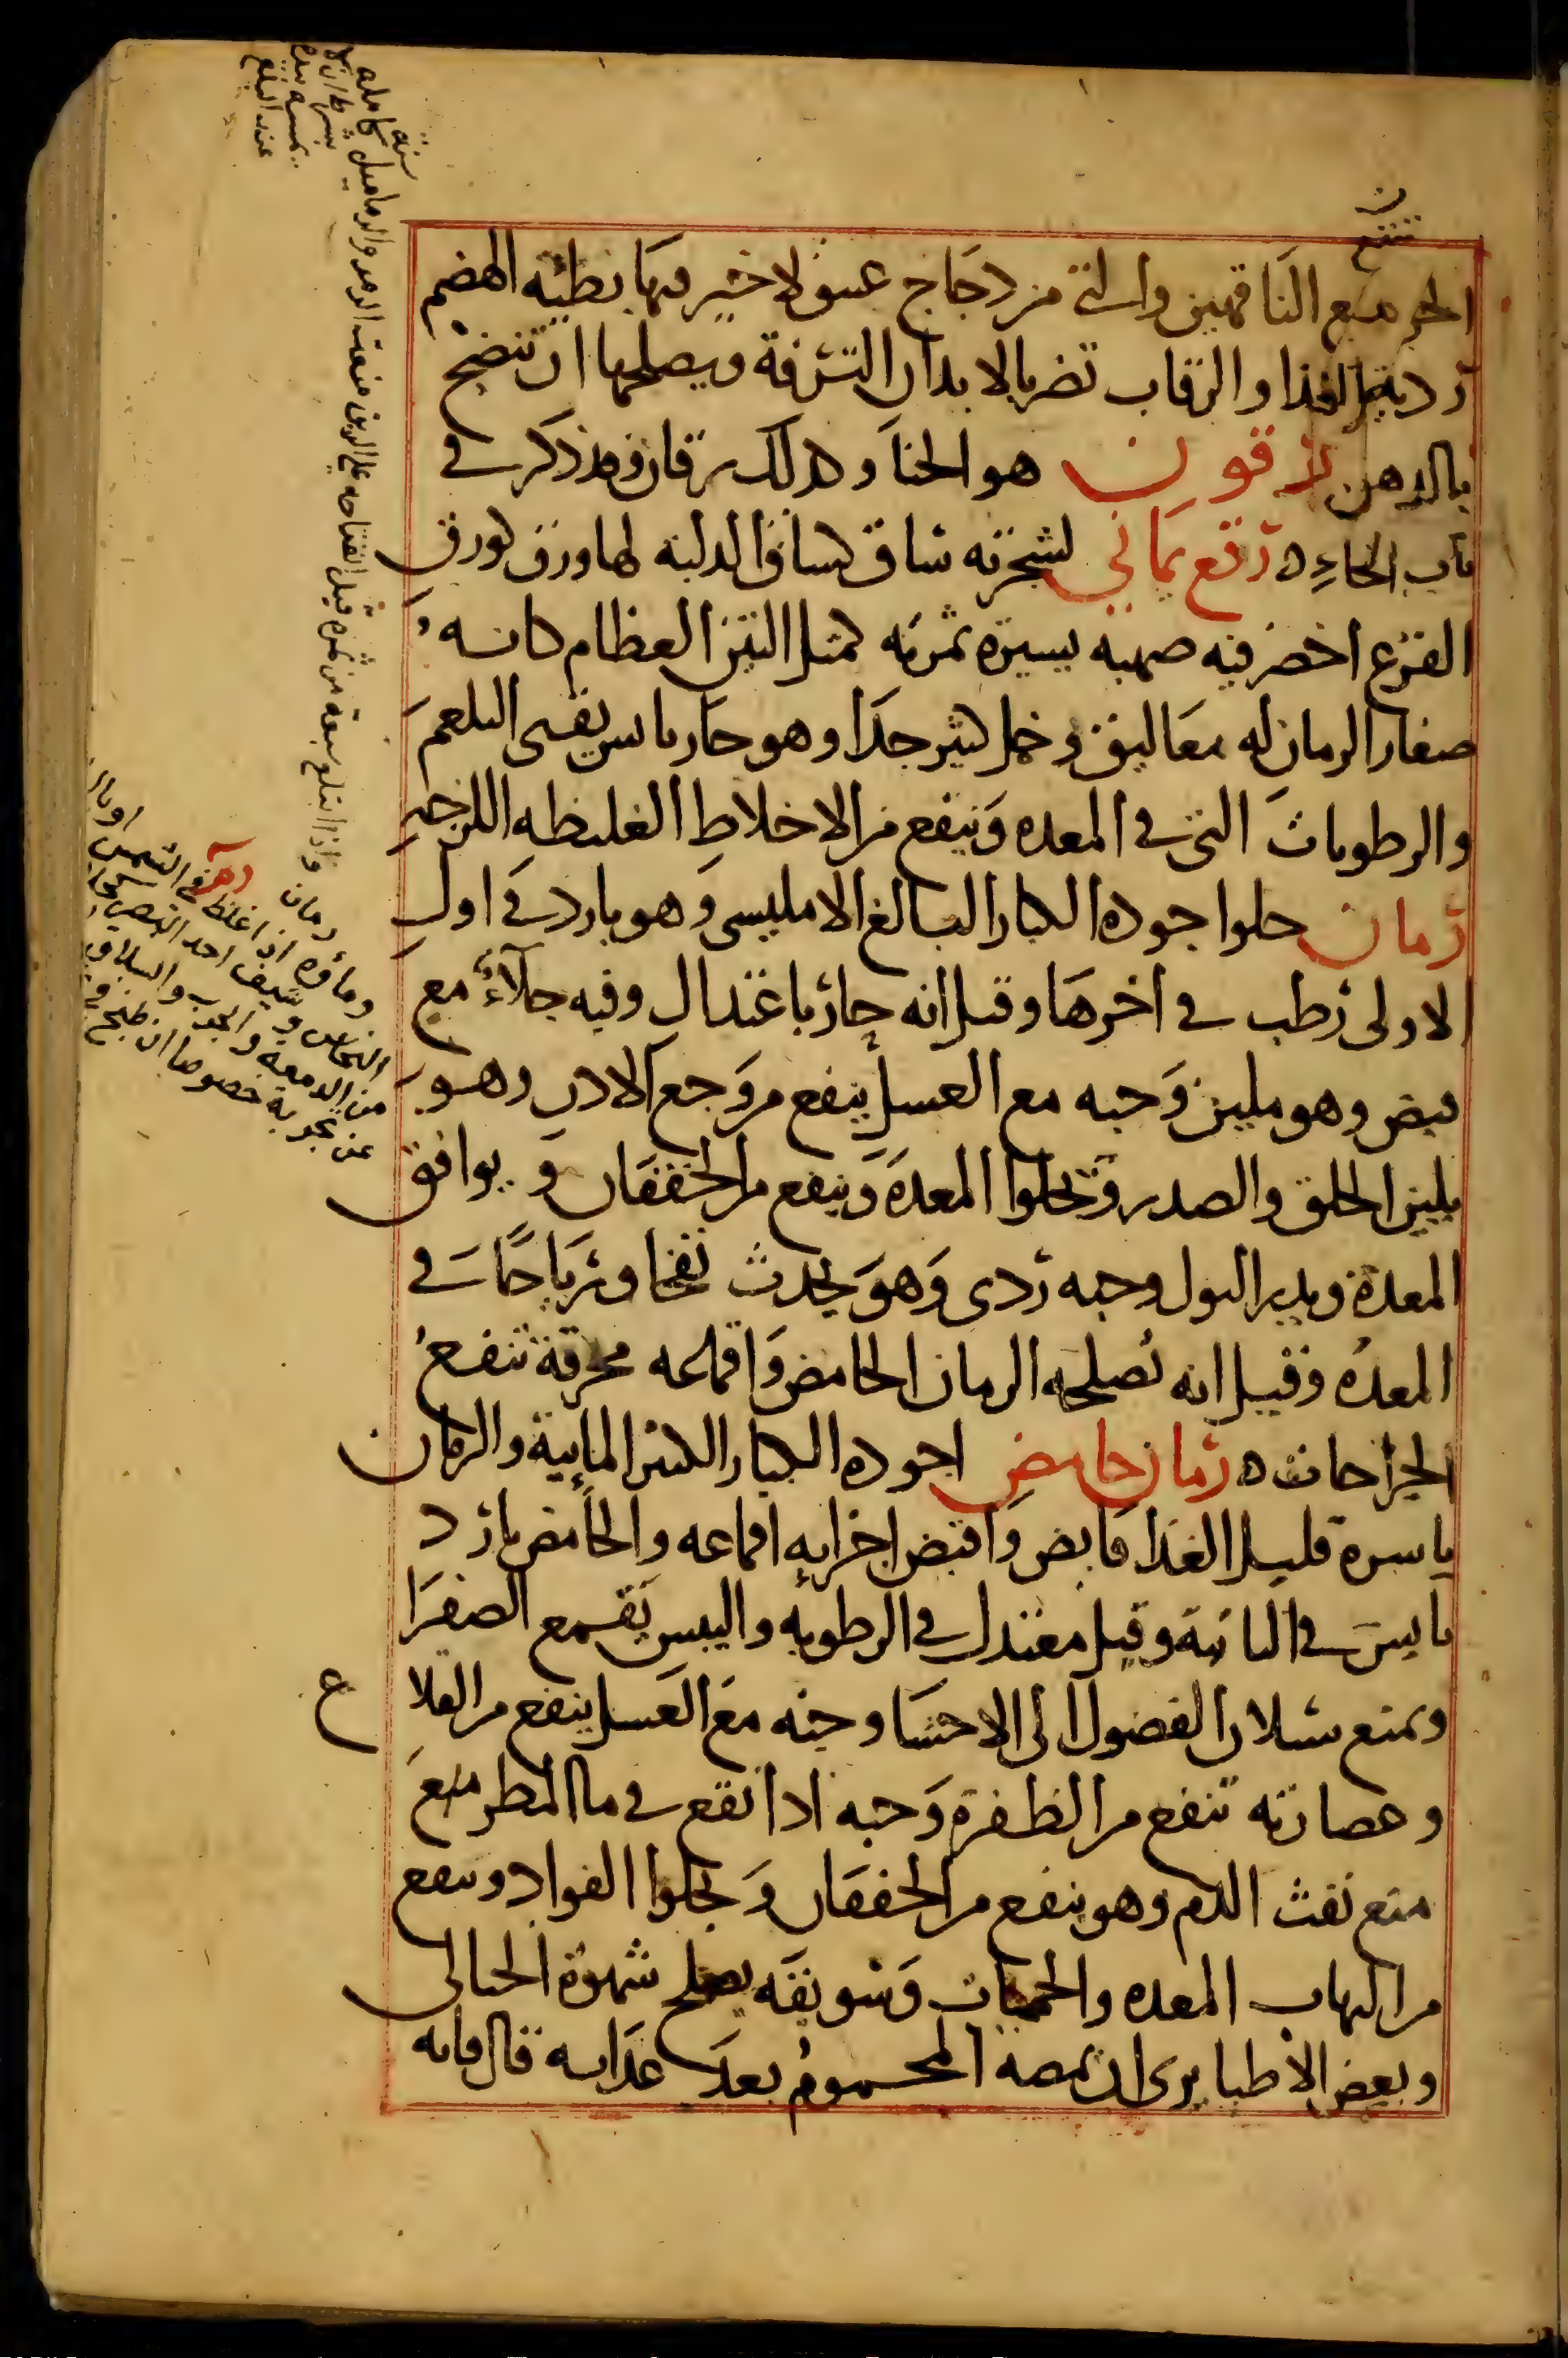 تنفع
الحر منع الناقهين والتي من دجاج عتيق لا خير فيها بطيئه الهضم
رديه الغذا والرقاب تضر بالابدان الترفة ويصلحها ان تنضج
بالدهن رقون هو الحنا وكذلك رقان وقد ذكر في
باب الحاء ه رقع يماني لشجرته ساق كساق الدلبه لها ورق كورق
القرع اخضر فيه صهبه يسيرة ثمرته كمثل التين العظام كانه
صغار الرمان له معاليق وخمل كثير جدا وهو حار يابس يقي البلغم
والرطوبات التي في المعده وينفع من الاخلاط الغليظه اللزجه
رمان حلوا جوده الكبار البالغ الامليسي وهو بارد في اول
الاولى رطب في اخرها وقيل انه حار باعتدال وفيه جلاء مع
قبض وهو ملين وحبه مع العسل ينفع من وجع الاذن وهو
يلين الحلق والصدر وتجلوا المعدة وينفع من الخفقان ويوافق
المعدة ويدر البول وحبه ردى وهو يحدث نفخا ورياحا في
المعدة وقيل انه تصلحه الرمان الحامض واقماعه محرقة تنفع
الجراحات ه رمان حامض اجوده الكبار الكثير المايية والرمان
ياسره قليل الغذا قابض واقبض اجزايه اقماعه والحامض بارد
يابس في الثانية وقيل معتدل في الرطوبه واليبس يقمع الصفرا
ويمنع سيلان الفضول الى الاحشا وحبه مع العسل ينفع من القلاع
وعصارته تنفع من الظفرة وحبه اذا نقع في ما المطر منع
منع نفث الدم وهو ينفع من الخفقان وتجلوا الفواد وينفع
من التهاب المعده والحميات وسويقه يصلح شهوة الحبالى
وبعض الاطبا يرى ان يمصه المحموم بعد غذايه قال فانه
واذا ابتلع سبعة من ثمره قبل انفتاحه على الريق منعت الرمد والدماميل
سنة كامله
بشرط ان لا
يمسه بيده
عند البلع
رمان
وماؤه اذا غلظ في الشمس
النحاس
من الدمعة والجرب والسلاق
عن تجربة خصوصا ان طبخ